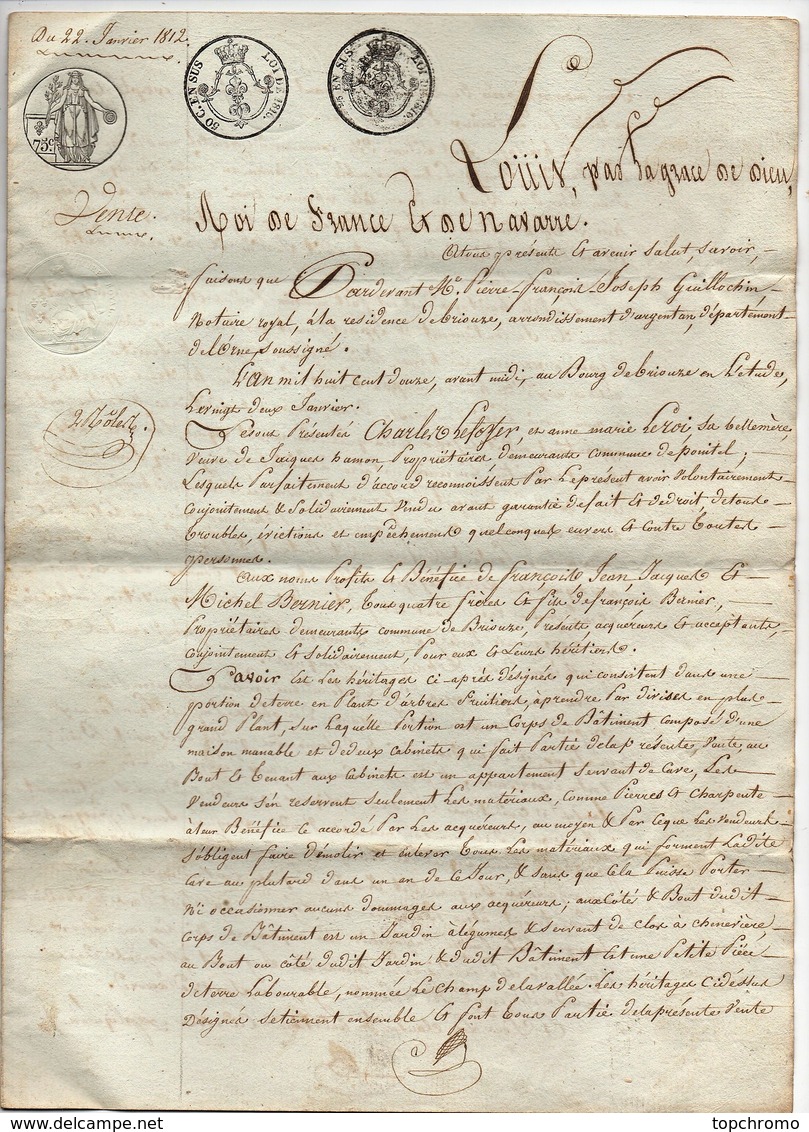 Du 22. Janvier 1812.
75c.
50 C. EN SUS LOI DE 1816.
25 EN SUS LOI DE 1816.
Vente.
2 Rôles.
Louis, par la grace de Dieu,
Roi de France Et de navarre.
A tous présents Et avenir salut, savoir,
faisons que Pardevant Me. Pierre-françois-Joseph Guillochin,
Notaire royal, à la residence de briouze, arrondissement d'argentan, département
de l'Orne, soussigné.
L'an mil huit cent douze, avant midi, au Bourg de briouze en L'etude,
Le vingt deux Janvier.
Furent Présents Charles Lefoyer, et anne marie Leroi sa bellemère,
veuve de Jacques hamon, Propriétaires demeurants commune de pointel;
Lesquels Parfaitement d'accord reconnoissent Par Le présent avoir Volontairement
Conjointement & Solidairement Vendu avant garantie de fait et de droit, de tous
troubles, évictions et empêchements quelconques envers Et contre Toutes
personnes.
Aux noms Profits Et Bénéfice de françois, Jean, Jacques Et
Michel Bernier, tous quatre frères Et fils de françois Bernier,
Propriétaires demeurants commune de Briouze, Présents acquereurs & acceptants,
Conjointement Et Solidairement, Pour eux Et Leurs héritiers.
Savoir Est Les héritages ci-après désignés qui consistent dans une
portion de terre en Plant d'arbres Fruitiers, à prendre Par divises en plus
grand Plant, sur Laquelle Portion est un Corps de Bâtiment composé d'une
maison manable et de deux cabinets qui fait Partie de la présente Vente, au
Bout Et tenant aux Cabinets est un appartement servant de Cave, Les
Vendeurs s'en reservent seulement Les matériaux, comme Pierres Et Charpente
à leur Bénéfice Ce accordé Par Les acquéreurs, au moyen & Par Ce que Les Vendeurs
s'obligent faire démolir et enlever tous Les matériaux qui forment La dite
Cave au plutard dans un an de Ce Jour, & sans que Cela Puisse Porter
Ni occasionner aucuns dommages aux acquéreurs; aux Côté & Bout dudit
Corps de Bâtiment est un Jardin à légumes & servant de clos à chenevière,
au Bout ou côté dudit Jardin & dudit Bâtiment Est une Petite Pièce
de terre Labourable, nommée Le Champ de la vallée. Les héritages Ci dessus
Désignés se tiennent ensemble & font tous Partie de la présente Vente
topchromo